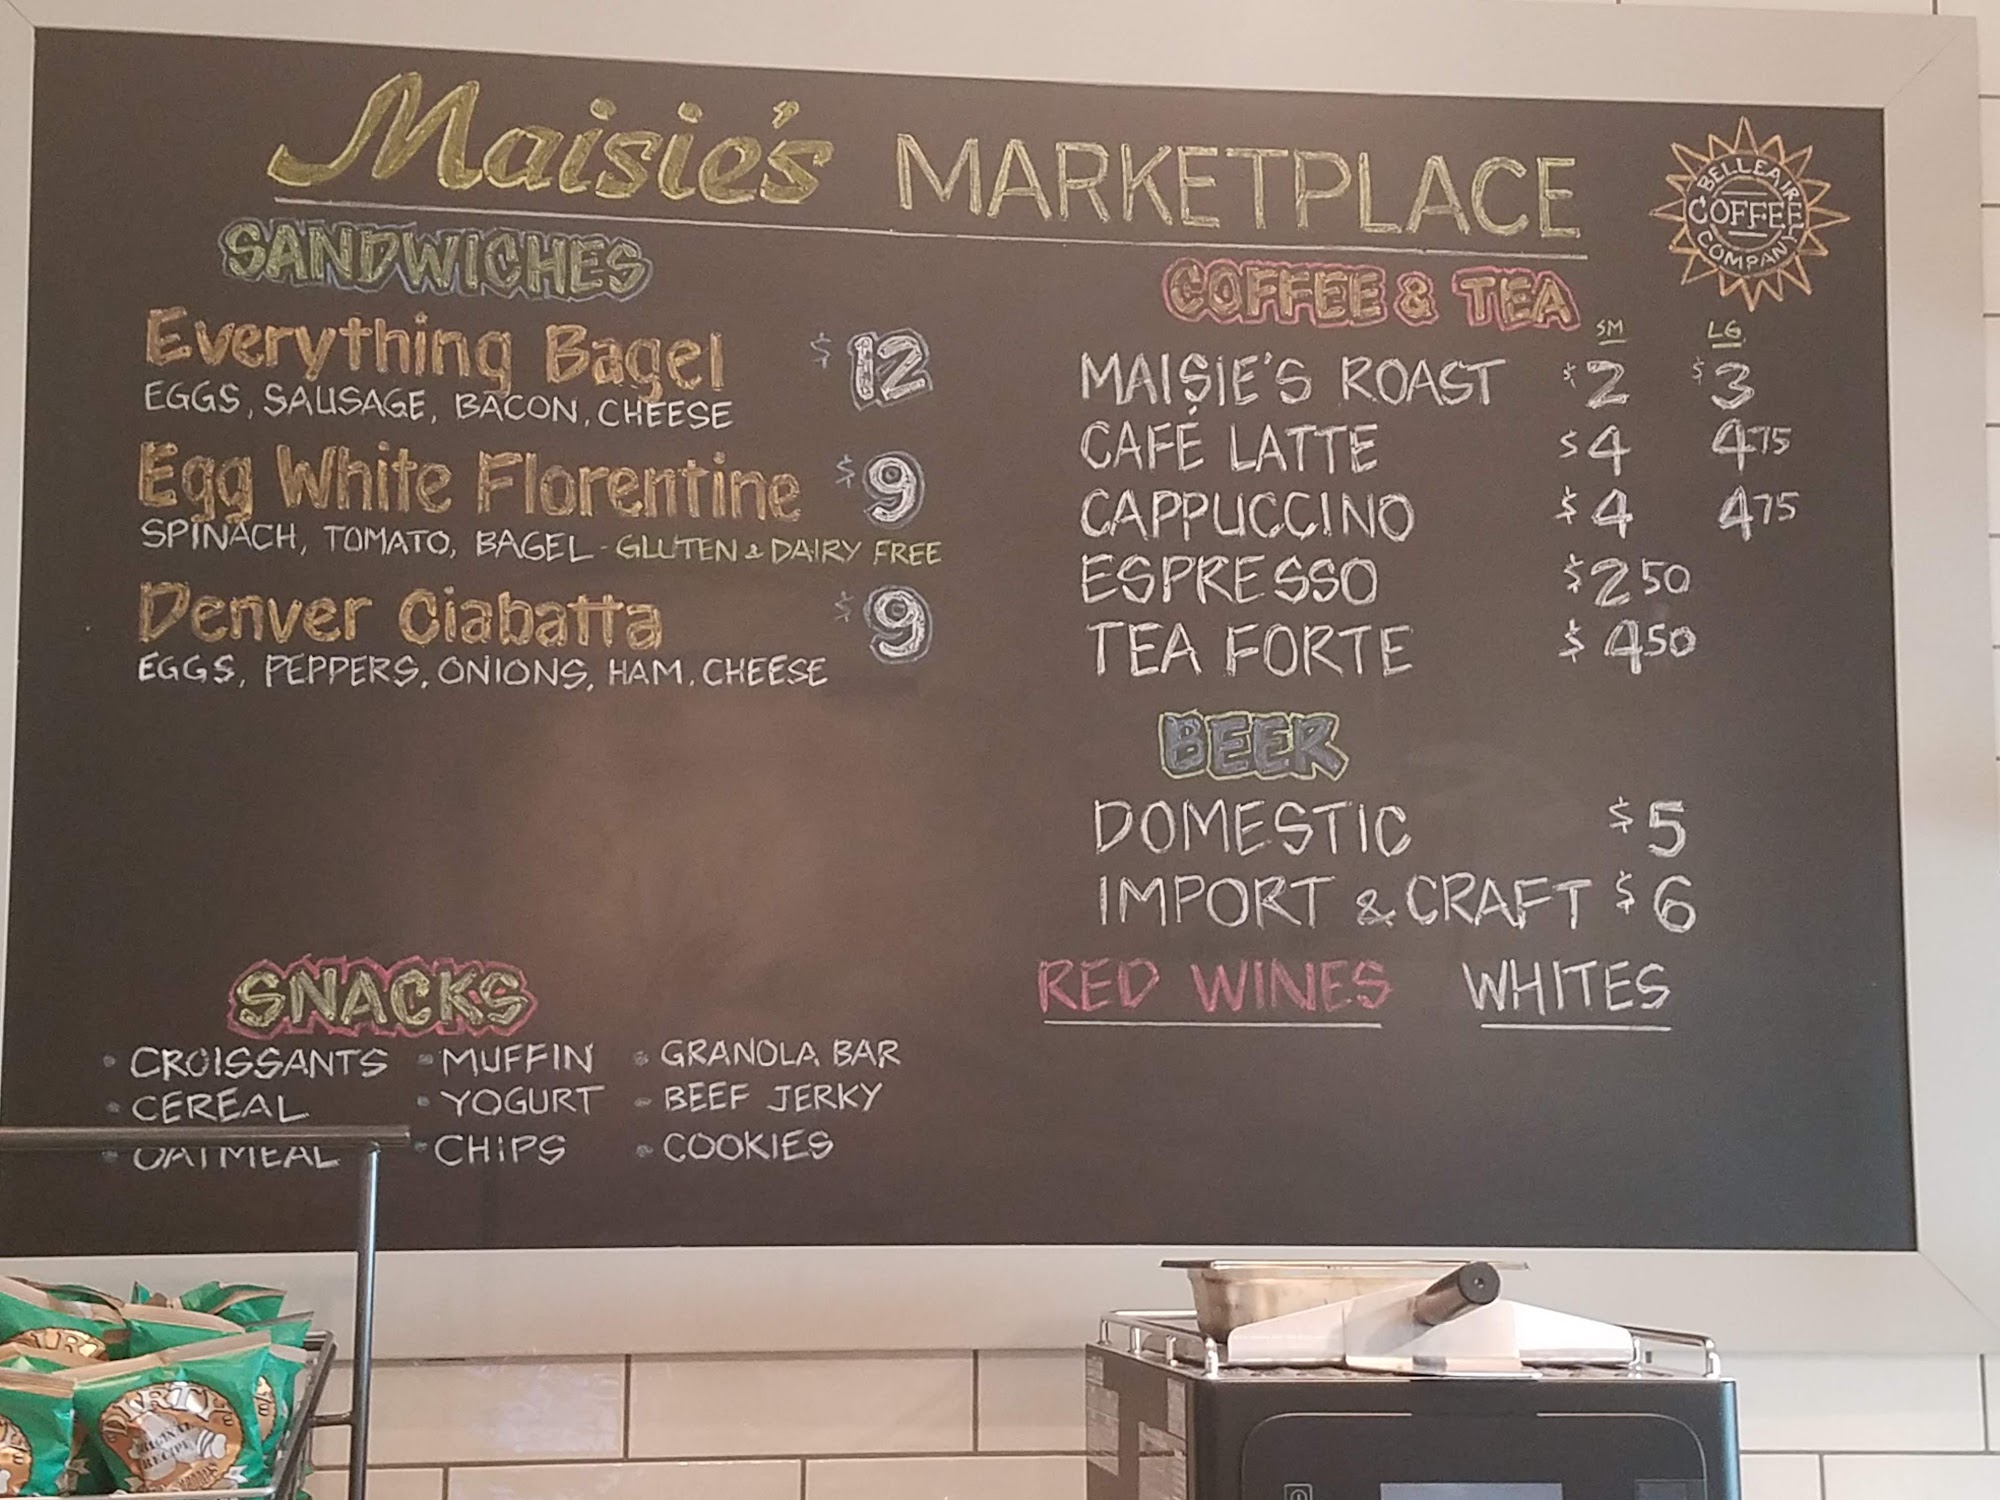 Maisie's MARKETPLACE
BELLEAIRE
COFFEE
COMPANY
SANDWICHES
Everything Bagel $12
EGGS, SAUSAGE, BACON, CHEESE
Egg White Florentine $9
SPINACH, TOMATO, BAGEL - GLUTEN & DAIRY FREE
Denver Ciabatta $9
EGGS, PEPPERS, ONIONS, HAM, CHEESE
SNACKS
• CROISSANTS • MUFFIN • GRANOLA BAR
• CEREAL • YOGURT • BEEF JERKY
• OATMEAL • CHIPS • COOKIES
COFFEE & TEA
SM LG
MAISIE'S ROAST $2 $3
CAFÉ LATTE $4 475
CAPPUCCINO $4 475
ESPRESSO $250
TEA FORTE $450
BEER
DOMESTIC $5
IMPORT & CRAFT $6
RED WINES WHITES
DIRTY
ORIGINAL
RECIPE